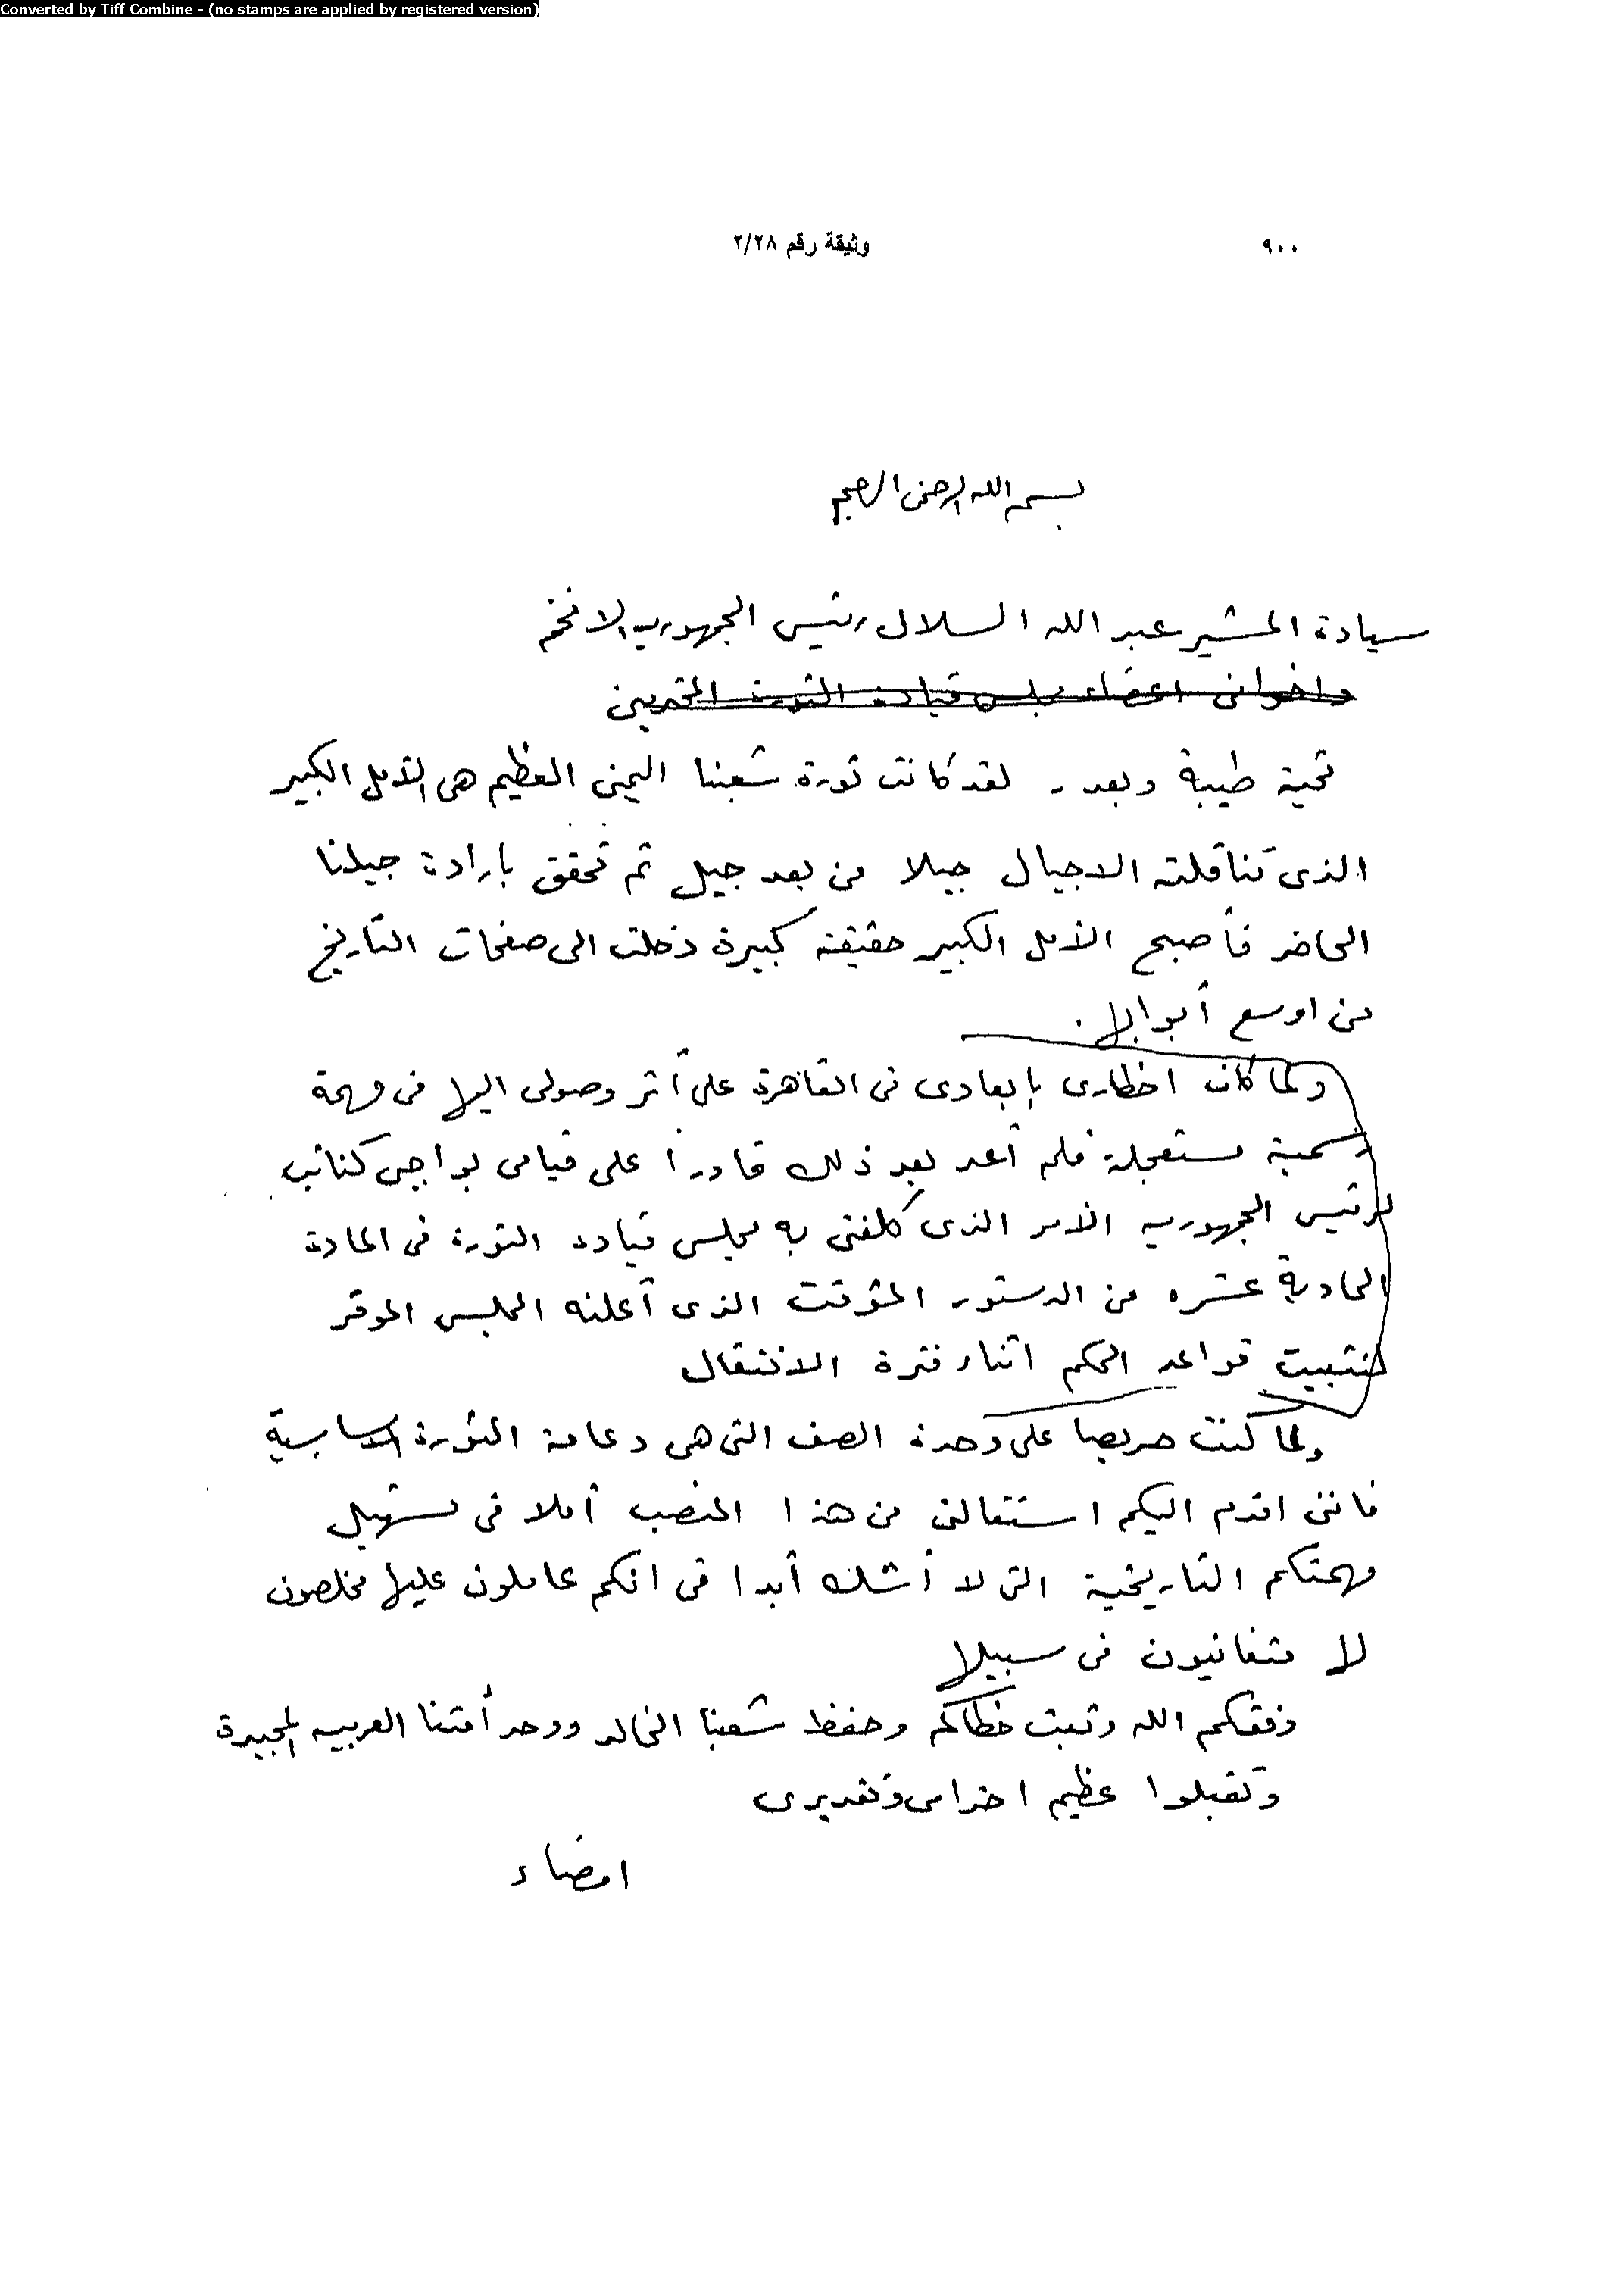 Converted by Tiff Combine - (no stamps are applied by registered version)
٩٠٠
وثيقة رقم ٢/٢٨
بسم الله الرحمن الرحيم
سيادة المشير عبد الله السلال رئيس الجمهورية الافخم
واخوانى اعضاء مجلس قيادة الثورة المحترمين
تحية طيبة وبعد . لقد كانت ثورة شعبنا اليمنى العظيم هى الأمل الكبير
الذى تناقلته الاجيال جيلا من بعد جيل ثم تحقق بارادة جيلنا
الحاضر فأصبح الأمل الكبير حقيقة كبيرة دخلت الى صفحات التاريخ
من اوسع أبوابها .
ولما كان اخطارى بإبعادى فى القاهرة على أثر وصولى اليها فى مهمة
رسمية مستعجلة فلم أعد بعد ذلك قادرا على قيامى بواجبى كنائب
لرئيس الجمهورية الأمر الذى كلفنى به مجلس قيادة الثورة فى المادة
الحادية عشره من الدستور المؤقت الذى أعلنه المجلس الموقر
لتثبيت قواعد الحكم اثناء فترة الانتقال
ولما كنت حريصا على وحدة الصف التى هى دعامة الثورة الاساسية
فاننى اقدم اليكم استقالتى من هذا المنصب أملا فى تسهيل
مهمتكم التاريخية التى لا أشك أبدا فى انكم عاملون عليها مخلصون
لها متفانيون فى سبيلها
وفقكم الله وثبت خطاكم وحفظ شعبنا الخالد ووحد أمتنا العربيه المجيدة
وتقبلوا عظيم احترامى وتقديرى
امضاء